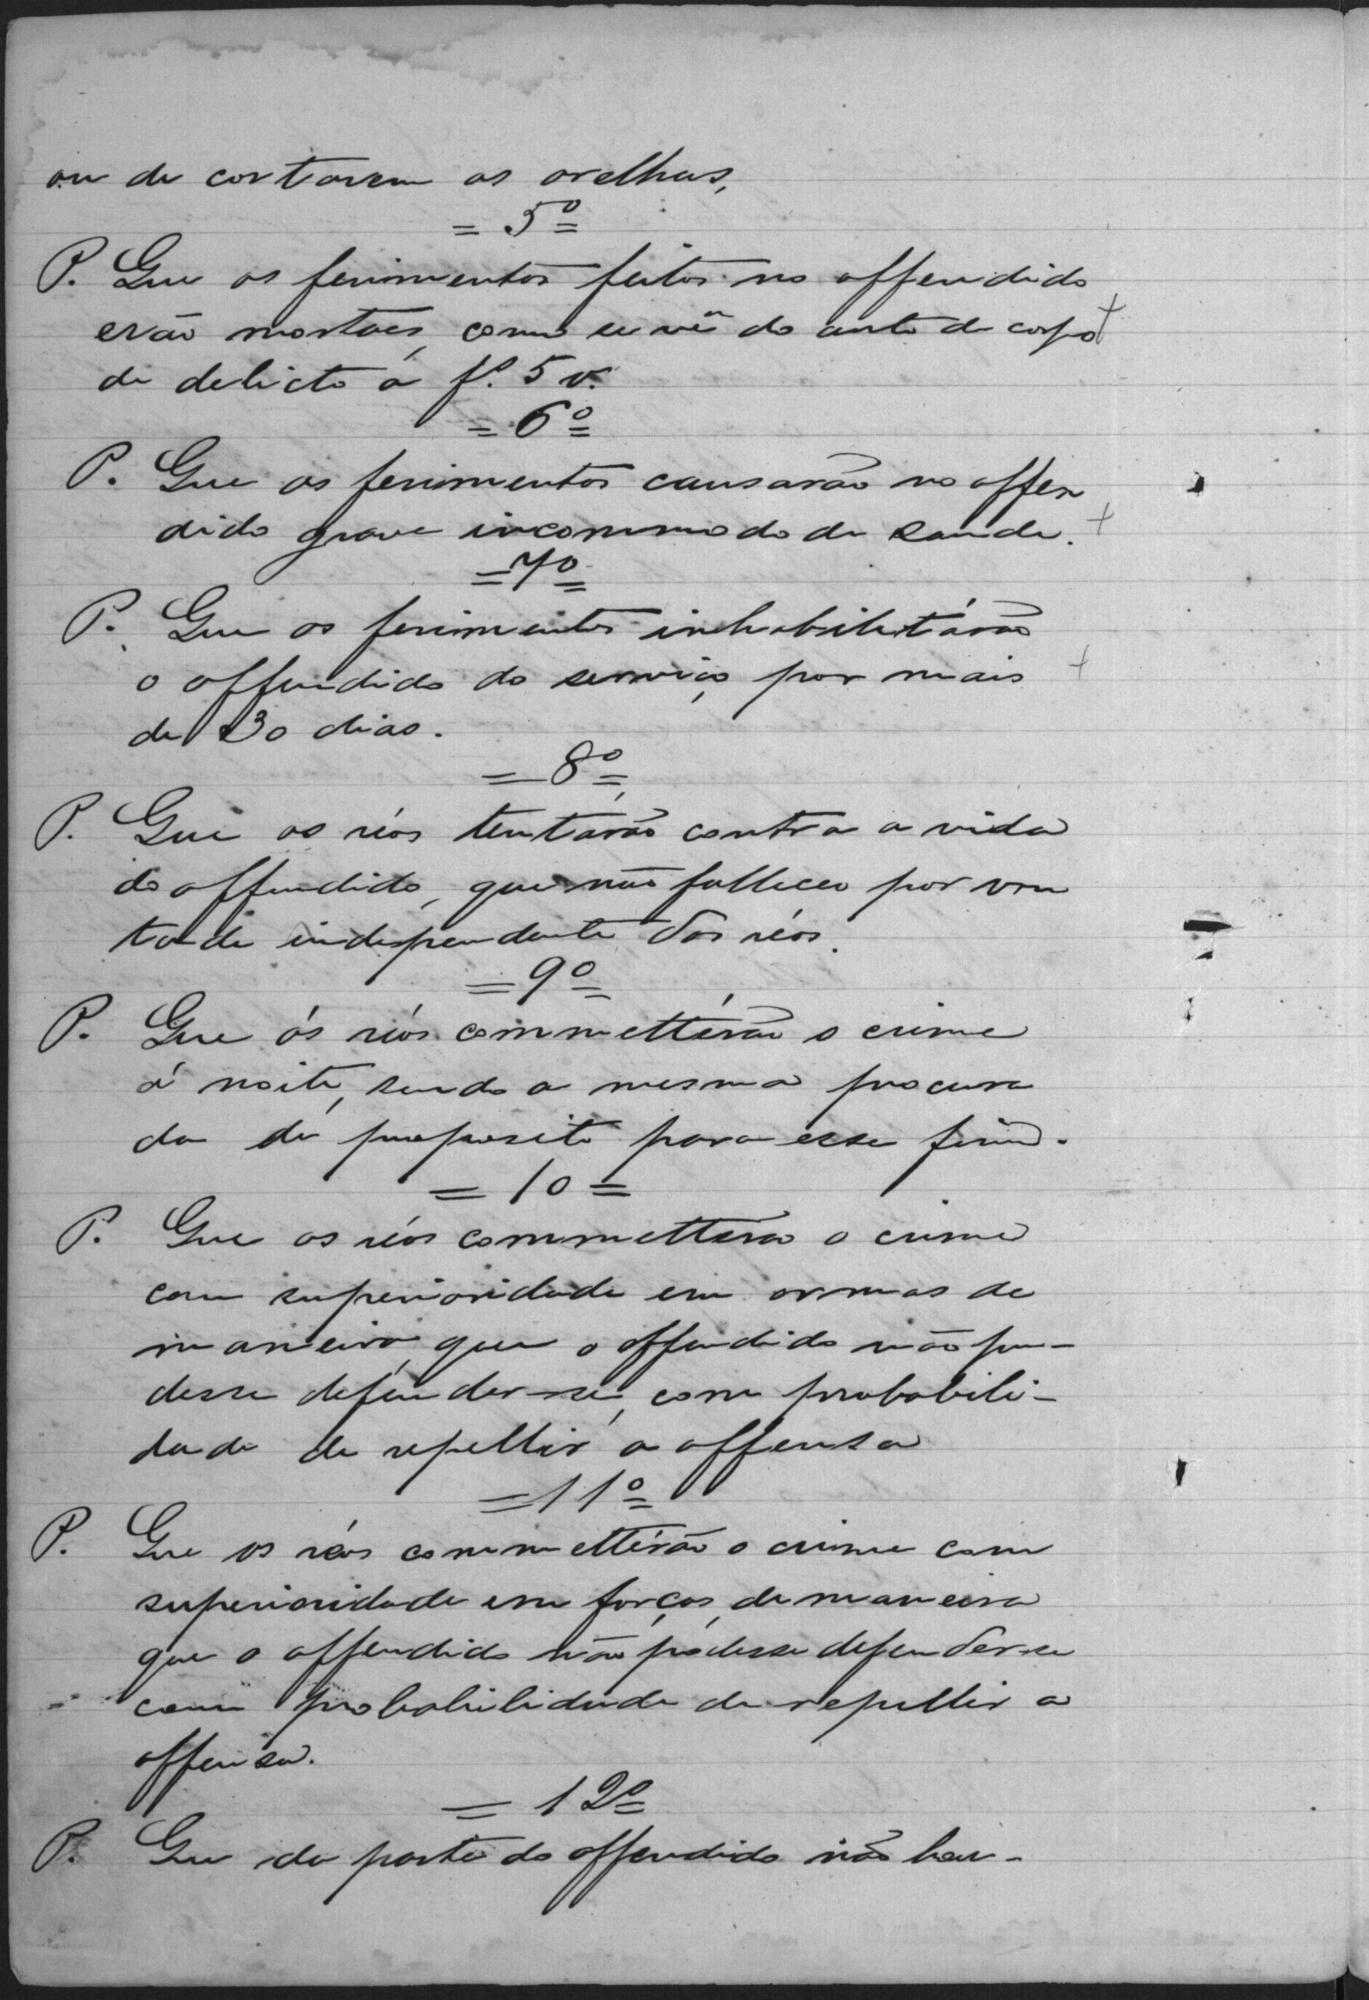 ou de cortarem as orelhas,
= 5º =
P. Que os ferimentos feitos no offendido
erão mortaes, como se vê do auto de corpo +
de delicto á fº. 5 v.
= 6º =
P. Que os ferimentos causarão no offen
dido grave incommodo de saude. +
= 7º =
P. Que os ferimentos inhabilitárão
o offendido do serviço por mais +
de 30 dias.
= 8º =
P. Que os réos tentárão contra a vida
do offendido, que não falleceu por von
tade independente dos réos.
= 9º =
P. Que os réos commettêrão o crime
á noite, sendo a mesma procura
da de proposito para esse fim.
= 10 =
P. Que os réos commetterão o crime
com superioridade em armas de
maneira que o offendido não pu-
desse defender-se, com probabili-
dade de repellir a offensa
= 11º =
P. Que os réos commettêrão o crime com
superioridade em forças, de maneira
que o offendido não podesse defender-se
com probabilidade de repellir a
offensa.
= 12º =
P. Que da parte do offendido não hou-